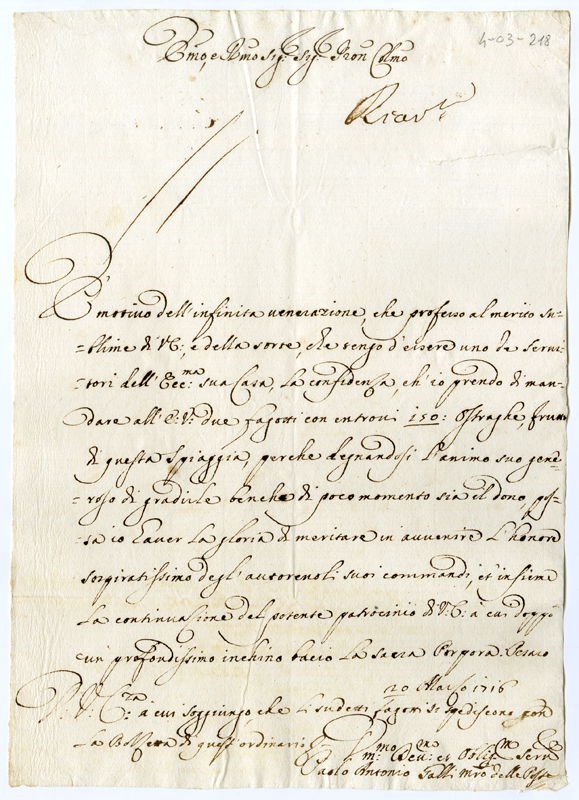 4-03-218
Em̃o, e Rm̃o Sig.r Sig.r Pron̄ Colm̃o
È motivo dell'infinita venerazione, che professo al merito su=
=blime di V.E., e della sorte, che tengo d'essere uno de servi=
=tori dell'Ecc.ma sua Casa, la confidenza, ch'io prendo di man=
dare all'E.V. due fagotti con entrovi 150: Ostraghe, frutto
di questa Spiaggia, perche degnandosi l'animo suo gene=
=roso di gradirle benche di poco momento sia il dono, pos=
=sa io haver la gloria di meritare in avvenire l'honore
sospiratissimo degl'autorevoli suoi commandi, et insieme
la continuazione del potente patrocinio di V.E: à cui doppo
un profondissimo inchino bacio la Sacra Porpora. Pesaro
20 Marzo 1716
D. V. E.za à cui soggiungo, che li sudetti fagotti si spediscono con
la Bolzetta di quest'ordinario
Vm.mo Dev.mo et Oblig.mo Serv.
Paolo Antonio Galli mr̃o delle Poste